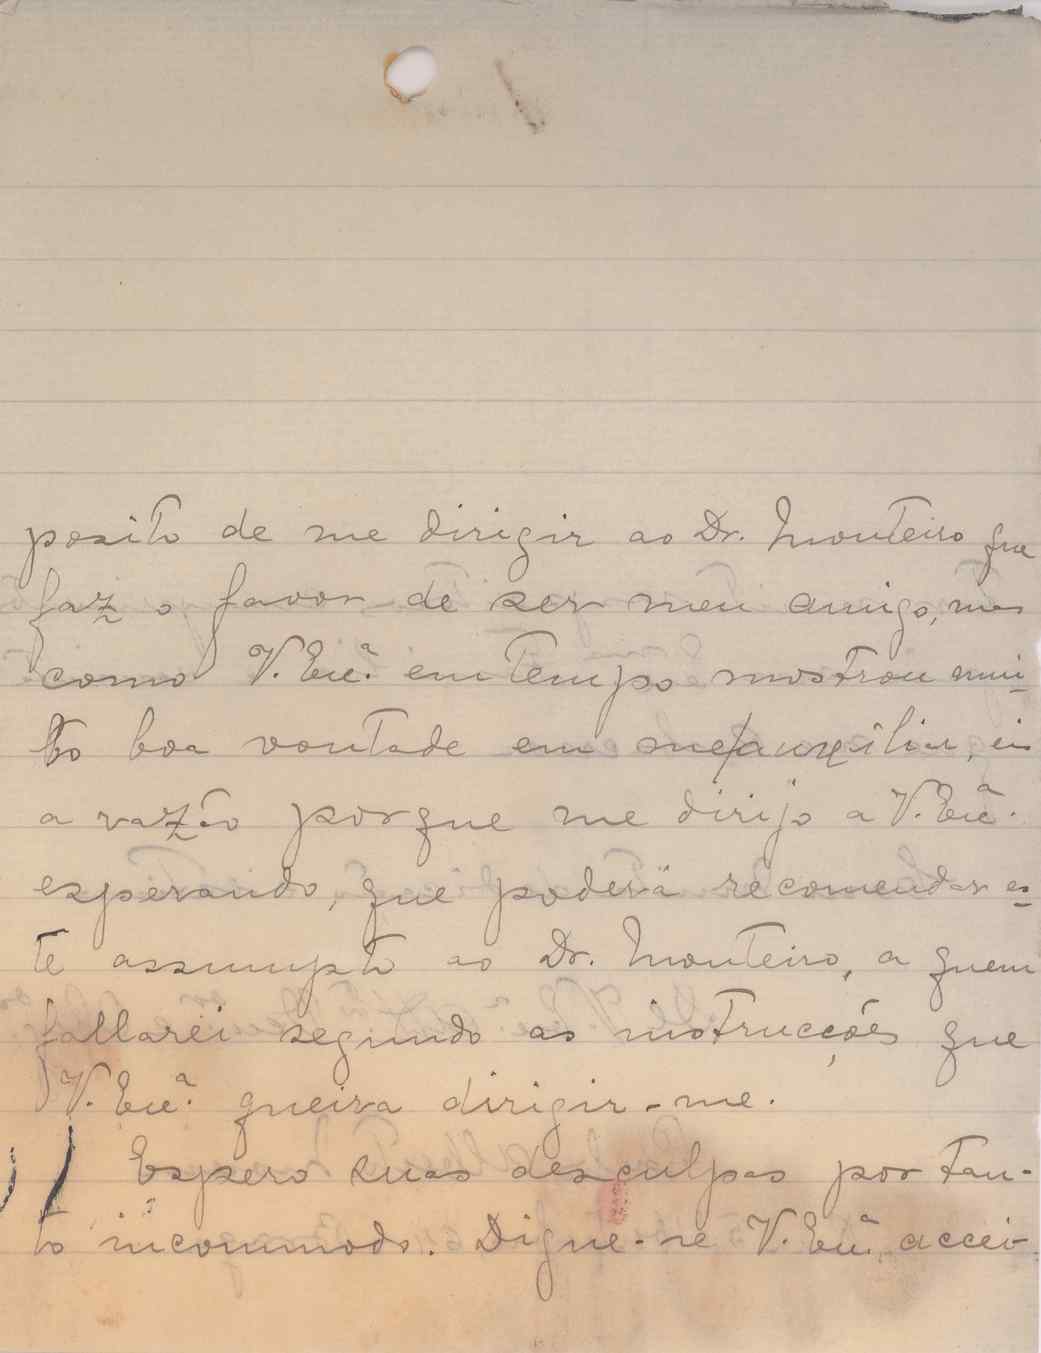 posito de me dirigir ao Dr. Monteiro que
faz o favor de ser meu amigo, mas
como V. Exc.ª em tempo mostrou mui-
to boa vontade em me/auxiliar, eis
a razão porque me dirijo a V. Exc.ª
esperando, que poderá recomendar es-
te assumpto ao Dr. Monteiro, a quem
fallarei segundo as instrucções que
V. Exc.ª queira dirigir-me.
Espero suas desculpas por tan-
to incommodo. Digne-se V. Exc.ª accei-